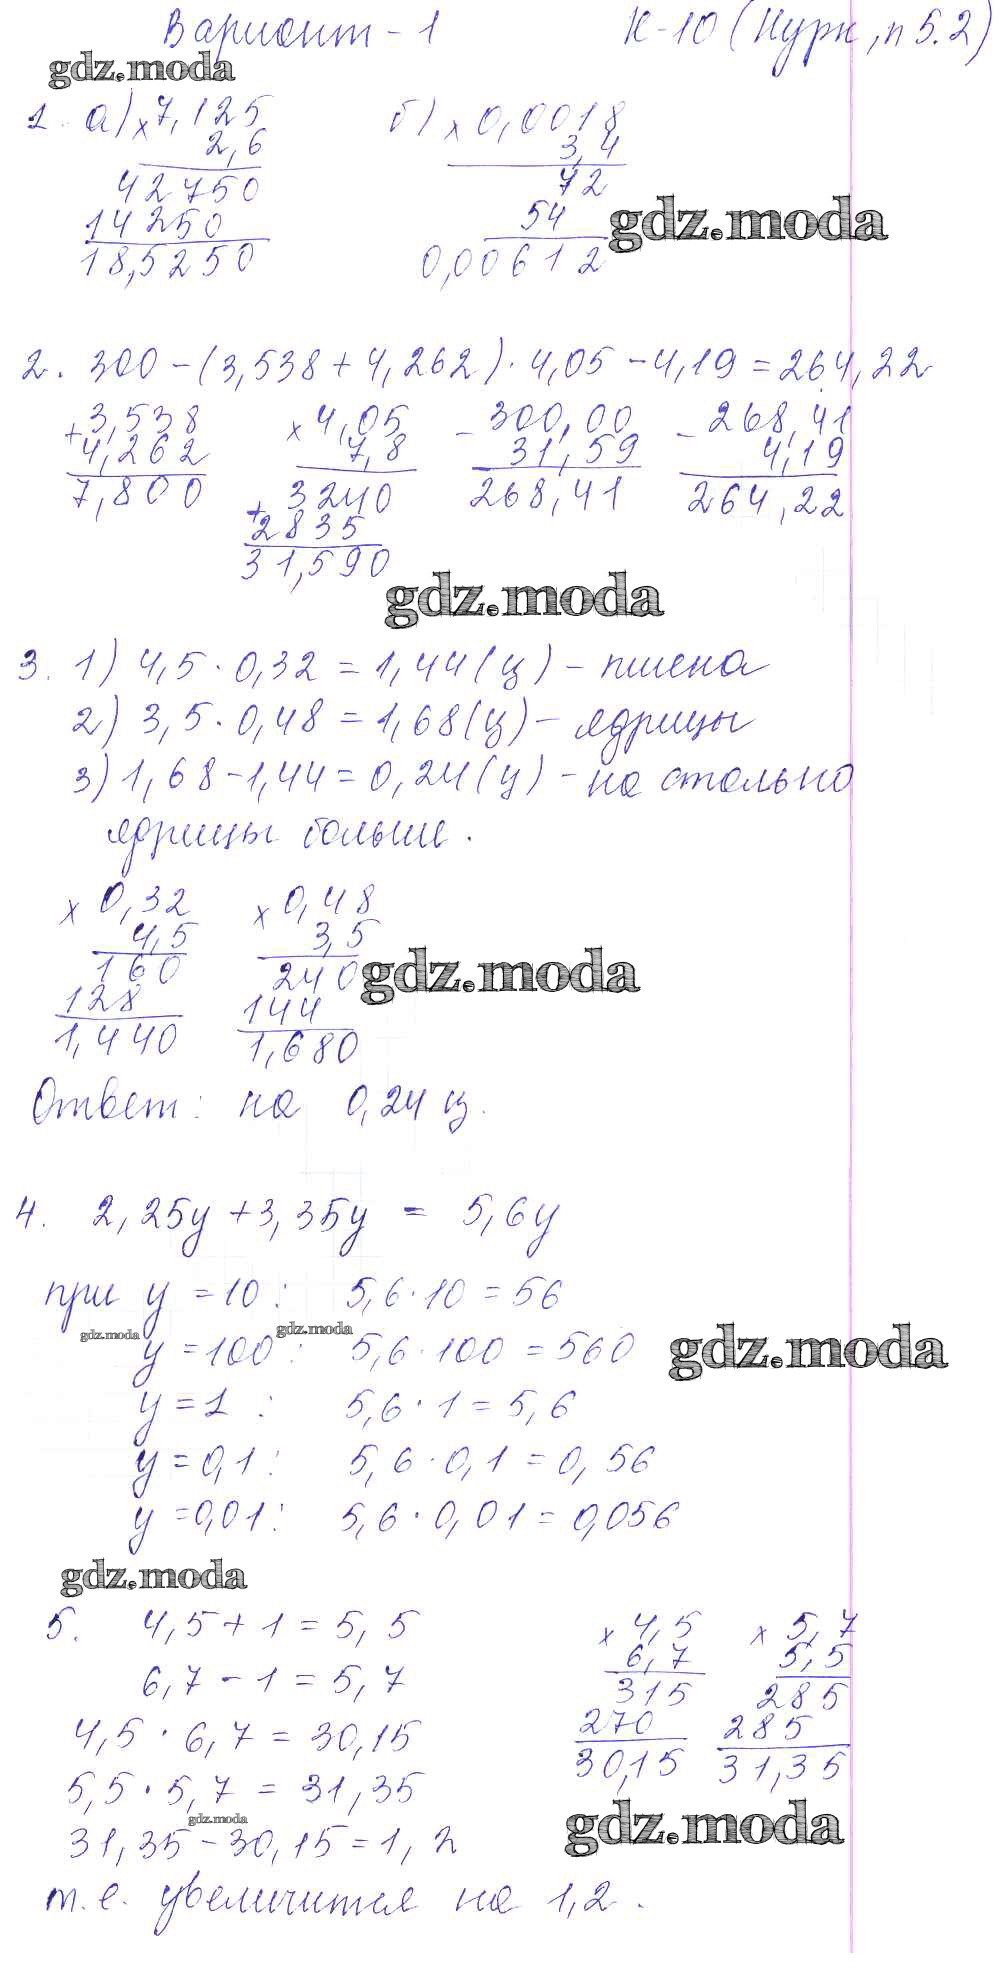 Вариант - 1 К-10 (Нурк, п 5.2)
gdz.moda
1. а) × 7,125 б) × 0,0018
2,6 3,4
42750 72
14250 54
18,5250 0,00612
gdz.moda
2. 300 - (3,538 + 4,262) · 4,05 - 4,19 = 264,22
+ 3,538 × 4,05 - 300,00 - 268,41
4,262 7,8 31,59 4,19
7,800 3240 268,41 264,22
+ 2835
31,590
gdz.moda
3. 1) 4,5 · 0,32 = 1,44 (ц) - пшена
2) 3,5 · 0,48 = 1,68 (ц) - ядрицы
3) 1,68 - 1,44 = 0,24 (ц) - на столько
ядрицы больше.
× 0,32 × 0,48
4,5 3,5
160 240
128 144
1,440 1,680
gdz.moda
Ответ: на 0,24 ц.
4. 2,25y + 3,35y = 5,6y
при y = 10 : 5,6 · 10 = 56
gdz.moda gdz.moda
y = 100 : 5,6 · 100 = 560
gdz.moda
y = 1 : 5,6 · 1 = 5,6
y = 0,1 : 5,6 · 0,1 = 0,56
y = 0,01 : 5,6 · 0,01 = 0,056
gdz.moda
5. 4,5 + 1 = 5,5 × 4,5 × 5,7
6,7 - 1 = 5,7 6,7 5,5
315 285
4,5 · 6,7 = 30,15 270 285
30,15 31,35
5,5 · 5,7 = 31,35
gdz.moda gdz.moda
31,35 - 30,15 = 1,2
т.е. увеличится на 1,2.